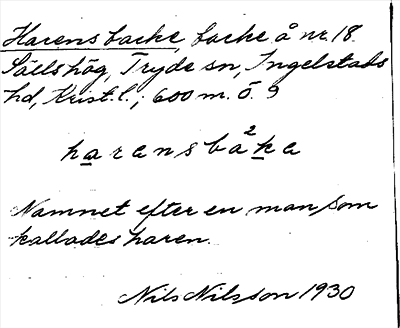 Harens backe, backe å nr. 18.
Sällshög, Tryde sn, Ingelstads
hd, Krist. l.; 600 m. ö. 9
haransba²ka
Namnet efter en man som
kallades haren.
Nils Nilsson 1930